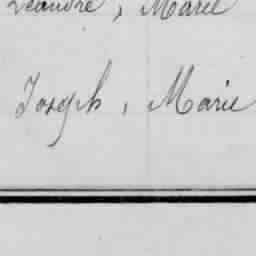 Léandre, Marie
Joseph, Marie